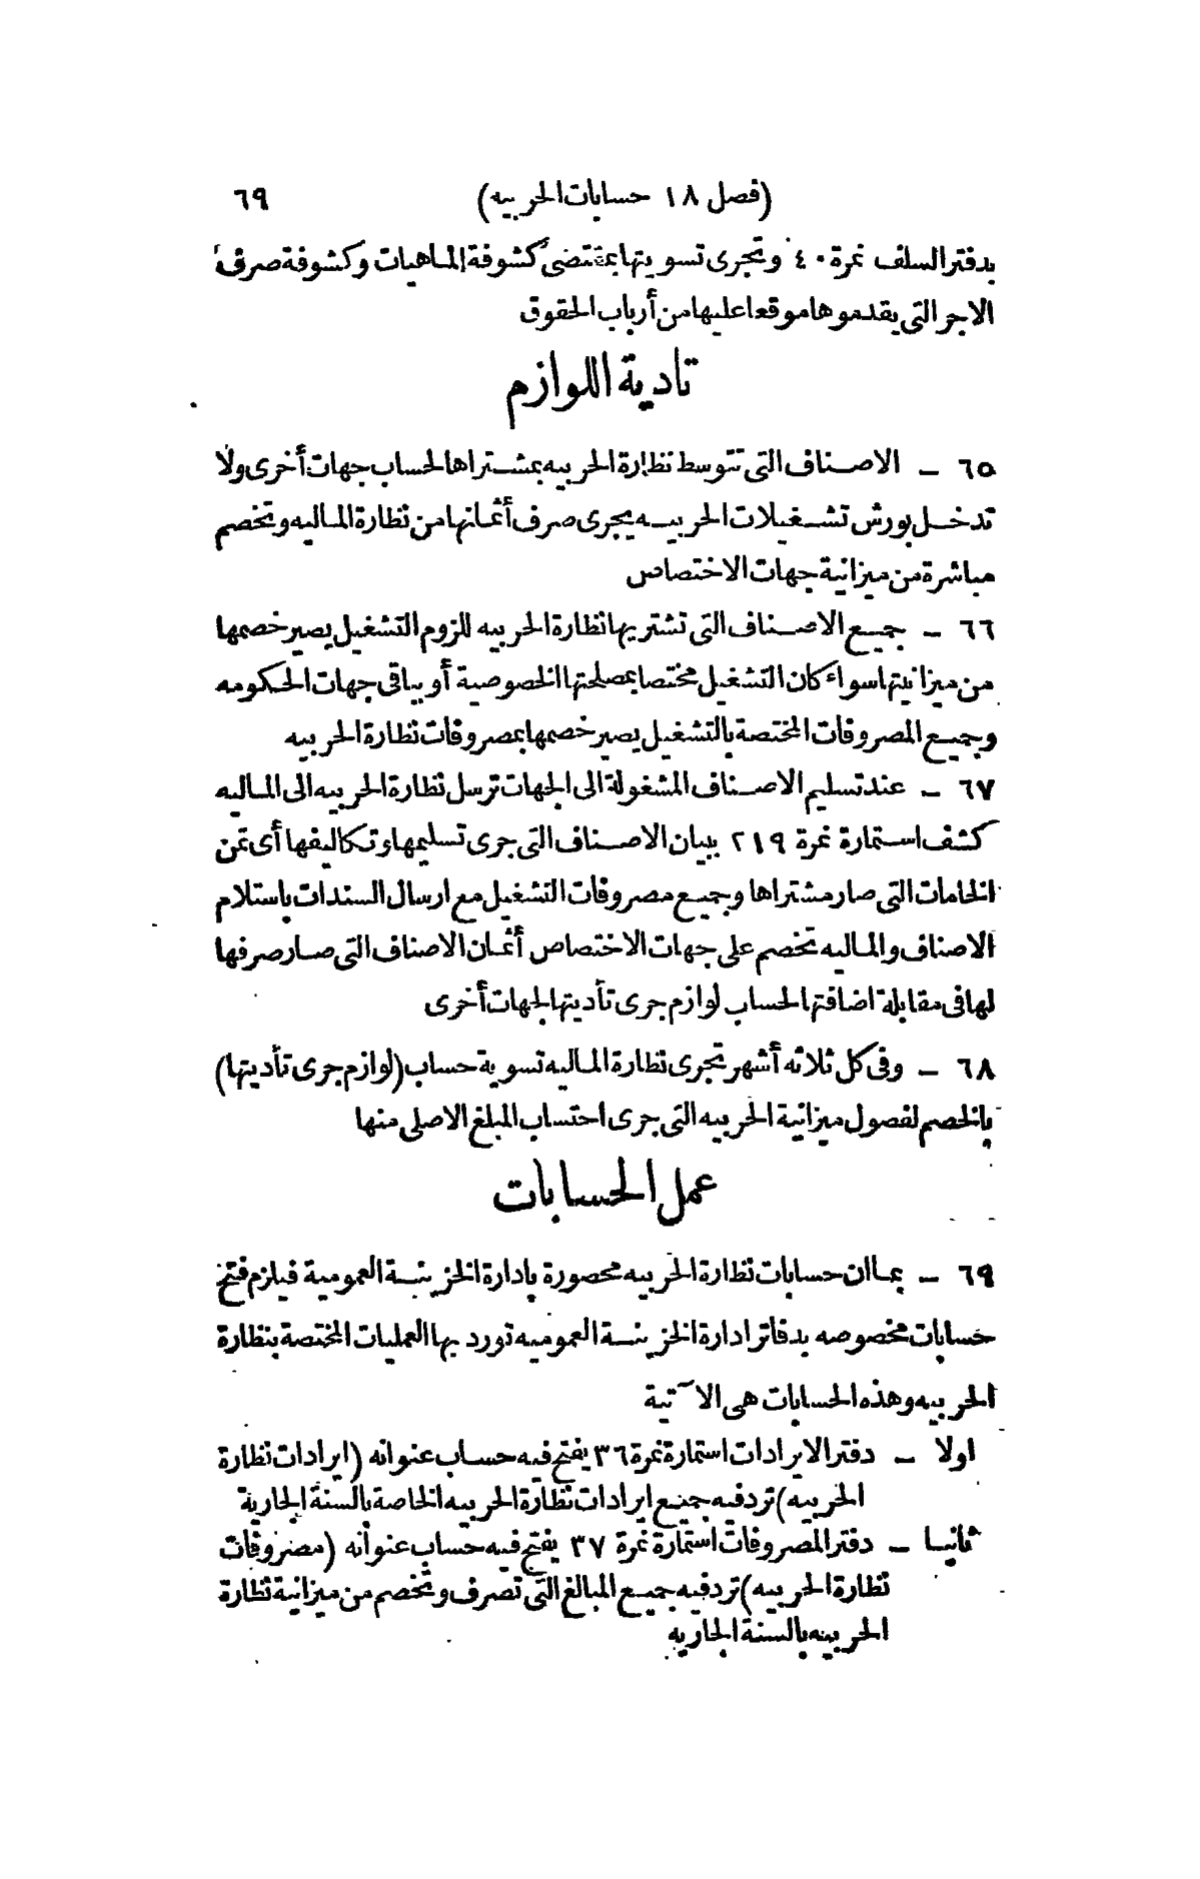 (فصل ١٨ حسابات الحربيه) ٦٩
بدفتر السلف نمرة ٤٠ وتجرى تسويتها بمقتضى كشوفة الماهيات وكشوفة صرف
الاجر التى يقدموها موقعا عليها من أرباب الحقوق
تادية اللوازم
٦٥ – الاصناف التى تتوسط نظارة الحربيه بمشتراها لحساب جهات أخرى ولا
تدخل بورش تشغيلات الحربيه يجرى صرف أثمانها من نظارة الماليه وتخصم
مباشرة من ميزانية جهات الاختصاص
٦٦ – جميع الاصناف التى تشتريها نظارة الحربيه للزوم التشغيل يصير خصمها
من ميزانيتها سواء كان التشغيل مختصا بمصلحتها الخصوصية أو بباقى جهات الحكومه
وجميع المصروفات المختصة بالتشغيل يصير خصمها بمصروفات نظارة الحربيه
٦٧ – عند تسليم الاصناف المشغولة الى الجهات ترسل نظارة الحربيه الى الماليه
كشف استمارة نمرة ٢١٩ ببيان الاصناف التى جرى تسليمها وتكاليفها أى ثمن
الخامات التى صار مشتراها وجميع مصروفات التشغيل مع ارسال السندات باستلام
الاصناف والماليه تخصم على جهات الاختصاص أثمان الاصناف التى صار صرفها
لها فى مقابلة اضافتها لحساب لوازم جرى تأديتها لجهات أخرى
٦٨ – وفى كل ثلاثه أشهر تجرى نظارة الماليه تسوية حساب (لوازم جرى تأديتها)
بالخصم لفصول ميزانية الحربيه التى جرى احتساب المبلغ الاصلى منها
عمل الحسابات
٦٩ – بما ان حسابات نظارة الحربيه محصورة بادارة الخزينة العمومية فيلزم فتح
حسابات مخصوصه بدفاتر ادارة الخزينة العموميه تورد بها العمليات المختصة بنظارة
الحربيه وهذه الحسابات هى الآتية
اولا – دفتر الايرادات استمارة نمرة ٣٦ يفتح فيه حساب عنوانه (ايرادات نظارة
الحربيه) ترد فيه جميع ايرادات نظارة الحربيه الخاصة بالسنة الجارية
ثانيا – دفتر المصروفات استمارة نمرة ٣٧ يفتح فيه حساب عنوانه (مصروفات
نظارة الحربيه) ترد فيه جميع المبالغ التى تصرف وتخصم من ميزانية نظارة
الحربيه بالسنة الجاريه